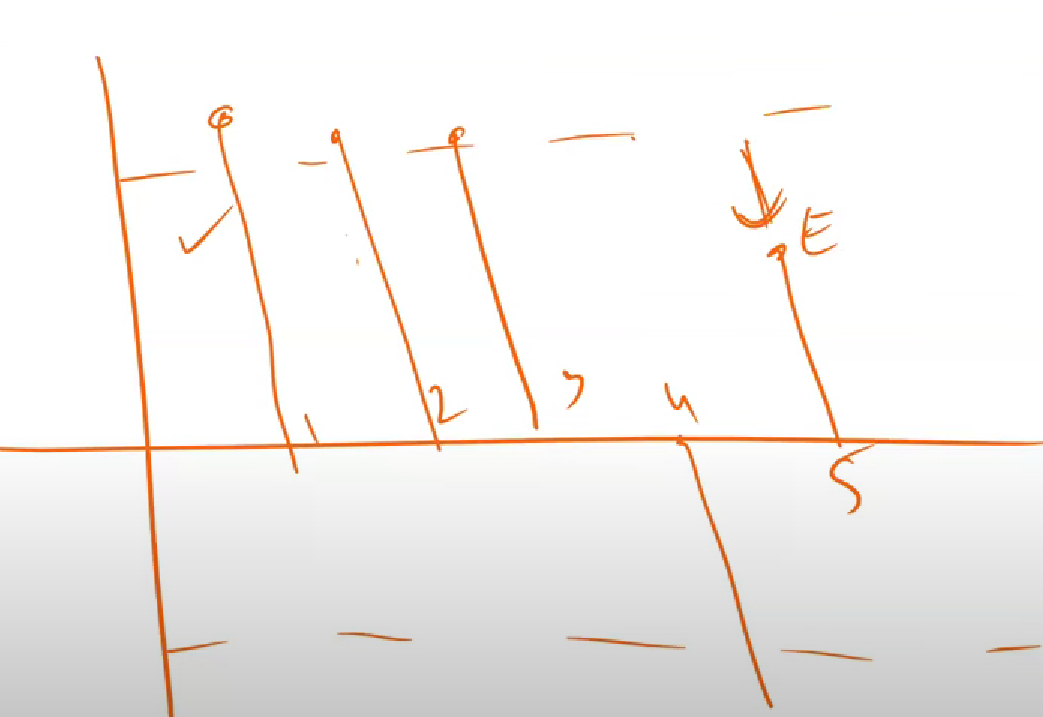 E
1
2
3
4
5